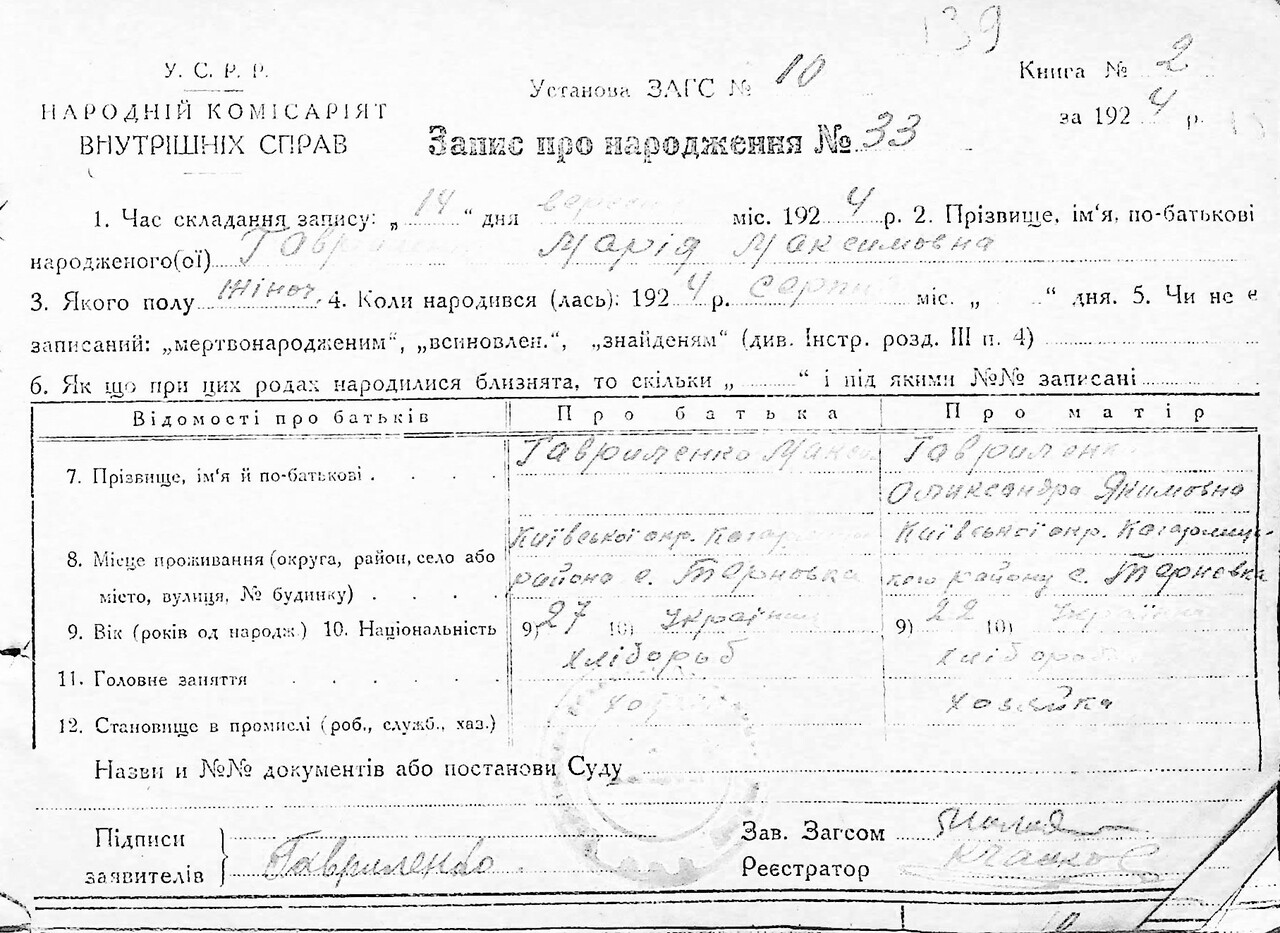 139
У. С. Р. Р.
НАРОДНІЙ КОМІСАРІЯТ
ВНУТРІШНІХ СПРАВ
Установа ЗАГС № 10
Книга № 2
за 1924 р.
Запис про народження № 33
1. Час складання запису: „ 14 “ дня верес міс. 1924 р. 2. Прізвище, ім'я, по-батькові
народженого(ої) Гавр Марія Максимовна
3. Якого полу жіноч. 4. Коли народився (лась): 1924 р. серпн міс. „ “ дня. 5. Чи не є
записаний: „мертвонародженим“, „всиновлен.“, „знайденям“ (див. Інстр. розд. III п. 4)
6. Як що при цих родах народилися близнята, то скільки „ “ і під якими №№ записані
Відомості про батьків Про батька Про матір
7. Прізвище, ім'я й по-батькові Гавриленко Макси Гавриленк
Олександра Якимовна
8. Місце проживання (округа, район, село або Київської окр. Кагар Київської окр. Кагарлиць-
місто, вулиця, № будинку) района с. Терновка кого району с. Терновка
9. Вік (років од народж.) 10. Національність 9) 27 10) Україн 9) 22 10) Україн
11. Головне заняття хлібороб хлібороб
12. Становище в промислі (роб., служб., хаз.) хозяйка
Назви и №№ документів або постанови Суду
Підписи
заявителів Гавриленко
Зав. Загсом
Реєстратор
10